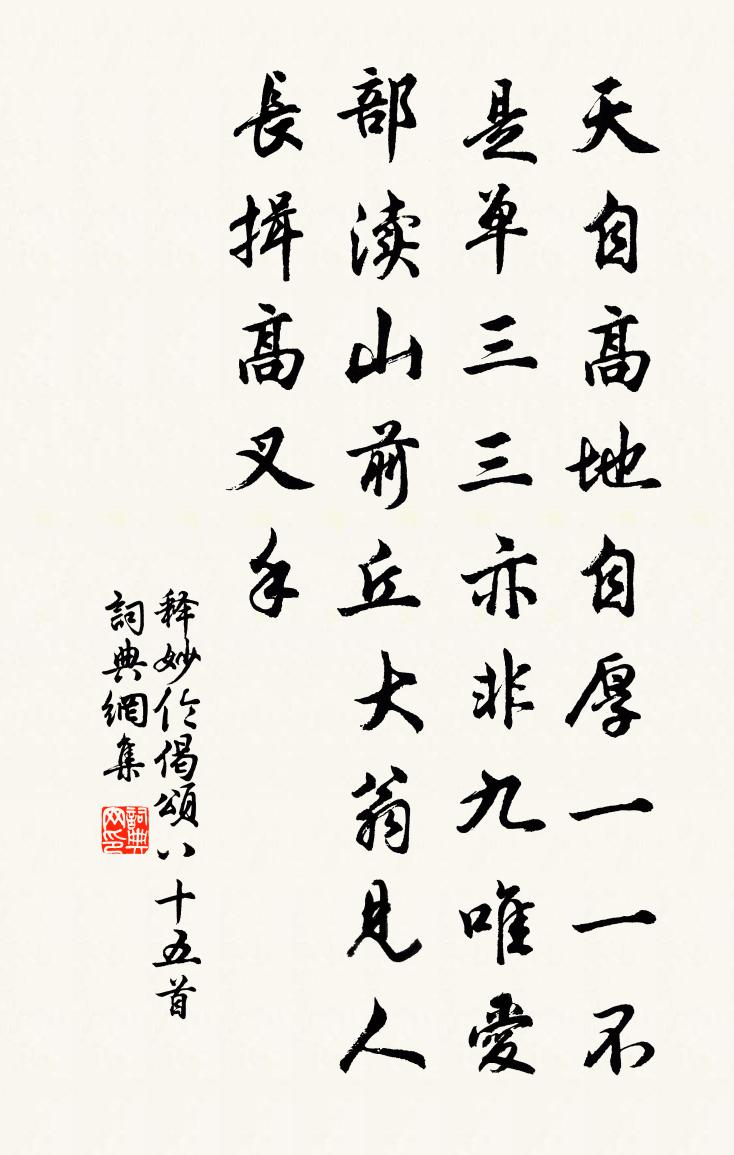 天自高地自厚一一不
是单三三亦非九唯愛
部渎山前丘大翁見人
長揖高叉手
释妙伦偈頌八十五首
詞典網集
詞典网印